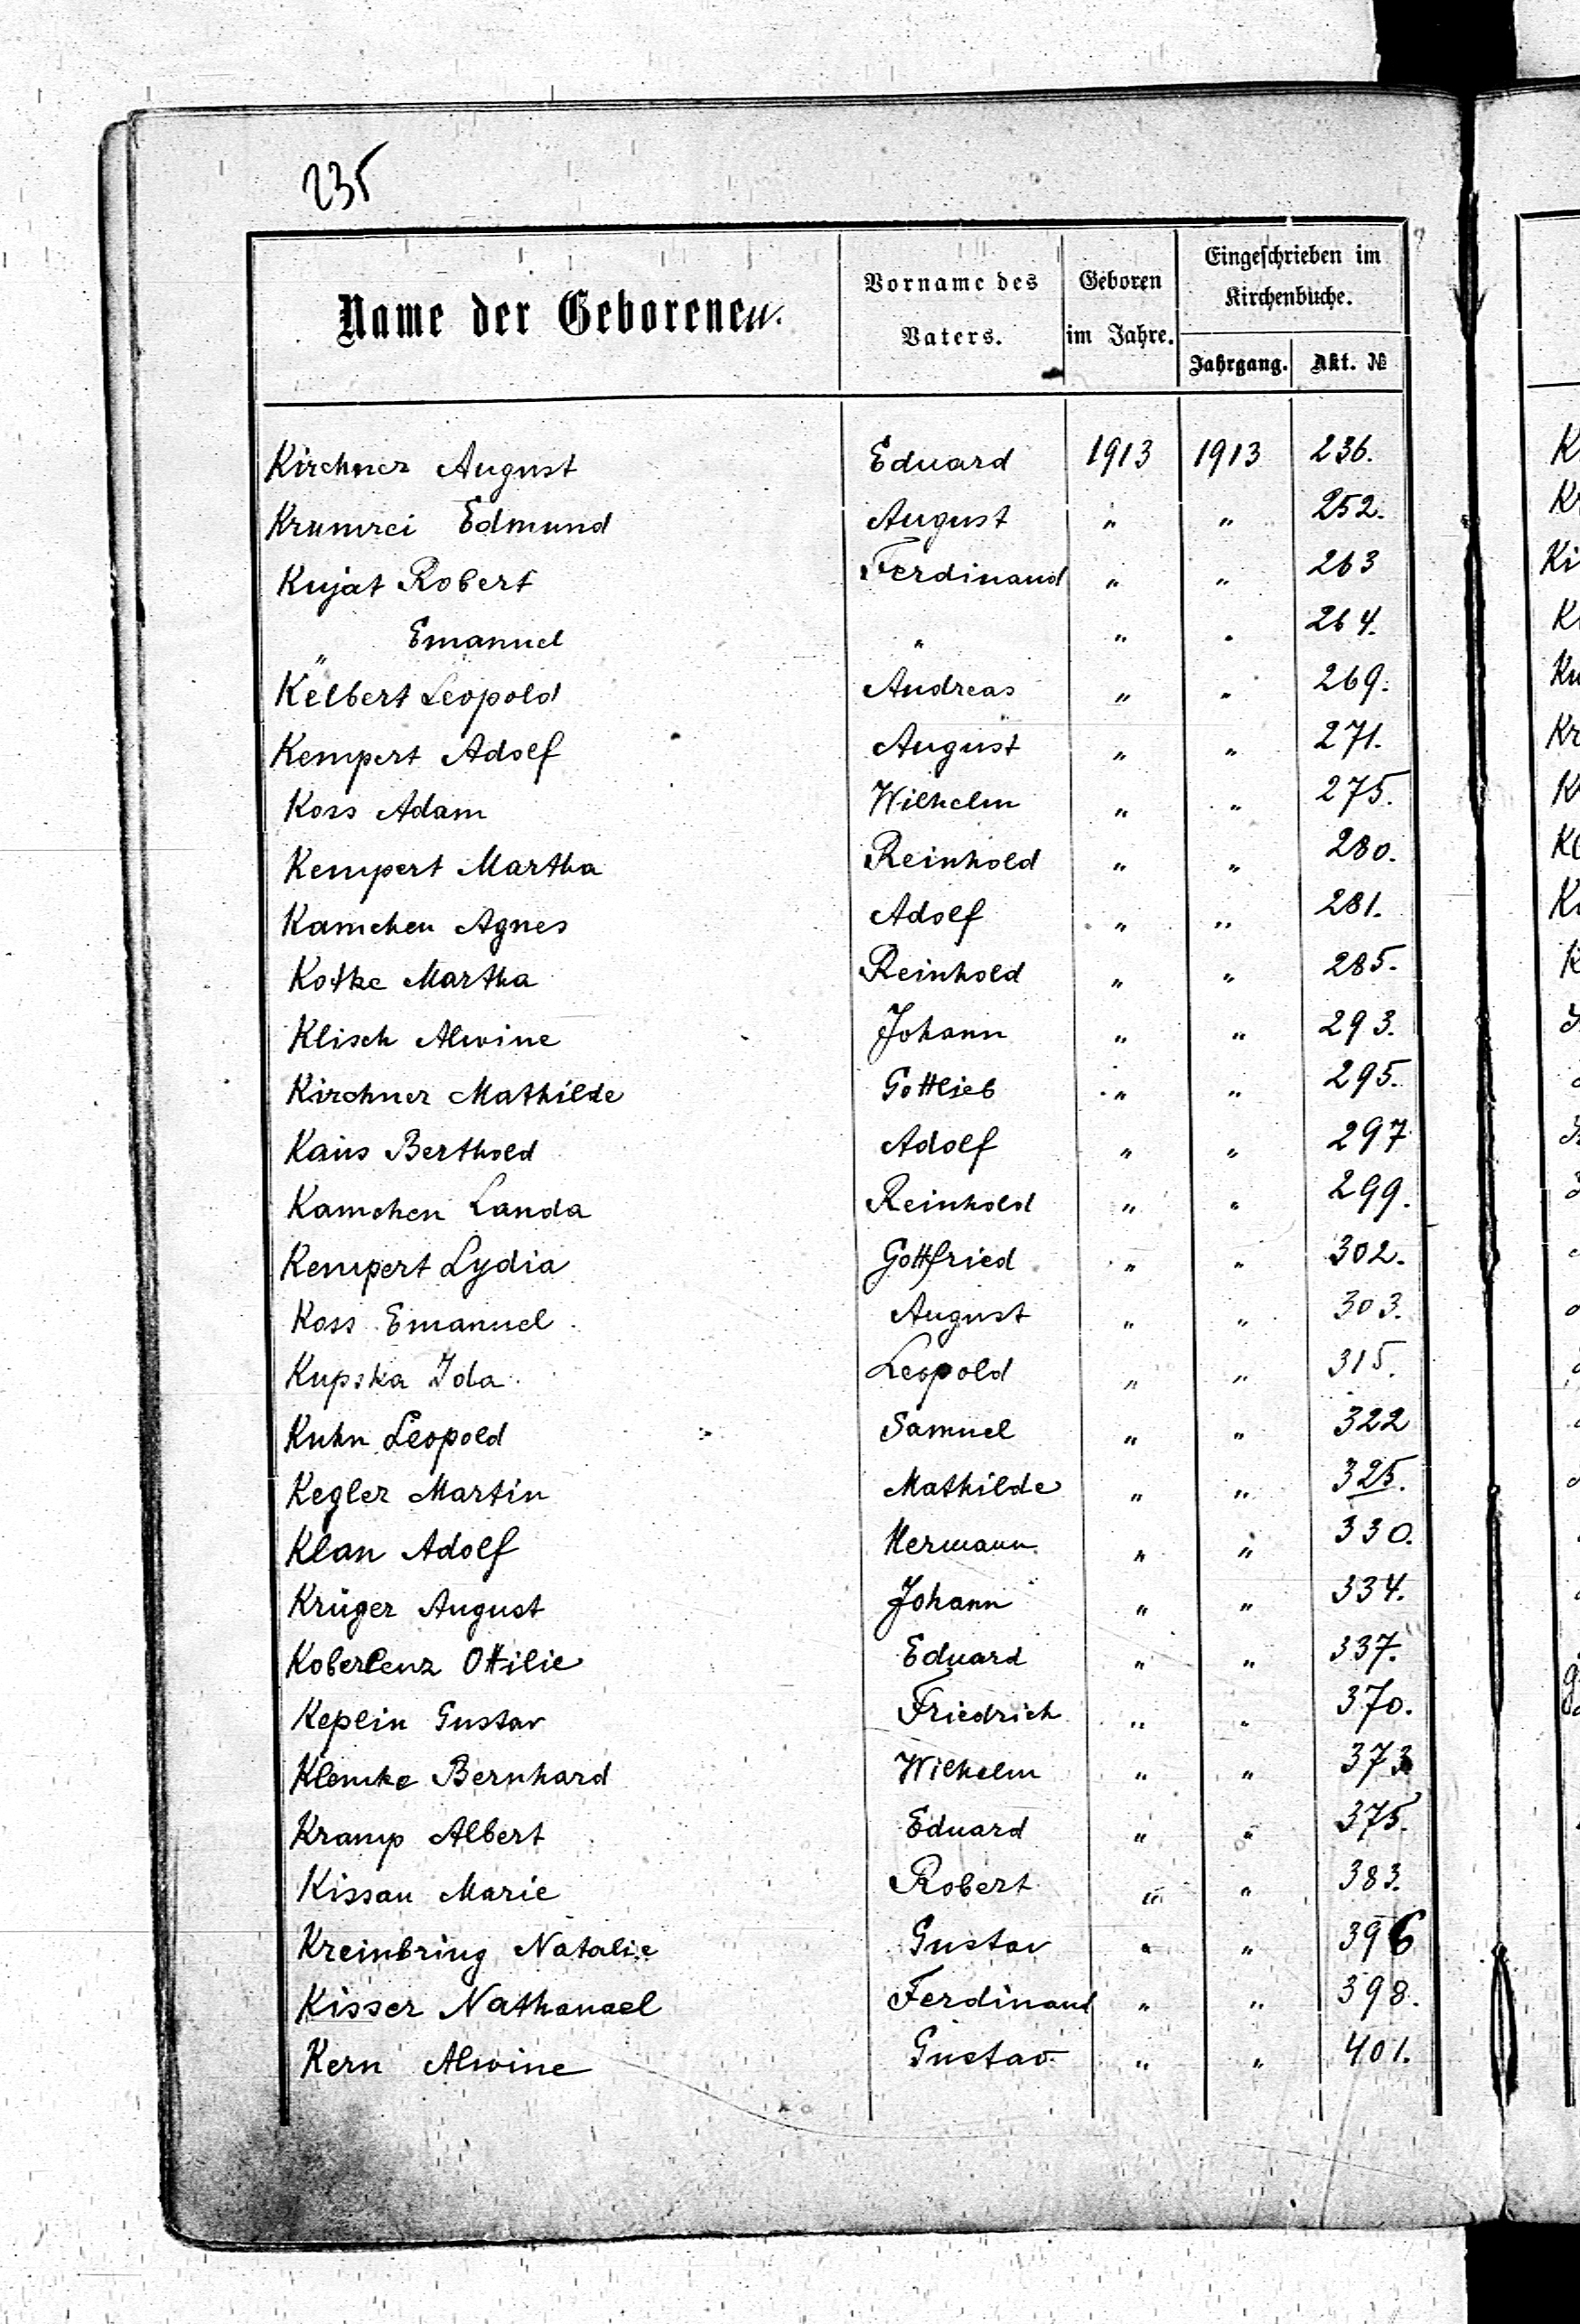 235
Name der Geborenen.
Vorname des Vaters.
Geboren im Jahre.
Eingeschrieben im Kirchenbuche.
Jahrgang. Akt. №
Kirchner August Eduard 1913 1913 236.
Krumrei Edmund August " " 252.
Kujat Robert Ferdinand " " 263
" Emanuel " " " 264.
Kelbert Leopold Andreas " " 269.
Kempert Adolf August " " 271.
Koss Adam Wilhelm " " 275.
Kempert Martha Reinhold " " 280.
Kamchen Agnes Adolf " " 281.
Kotke Martha Reinhold " " 285.
Klisch Alwine Johann " " 293.
Kirchner Mathilde Gottlieb " " 295.
Kaiis Berthold Adolf " " 297
Kamchen Landa Reinhold " " 299.
Kempert Lydia Gottfried " " 302.
Koss Emanuel August " " 303.
Kupska Ida Leopold " " 315.
Kuhn Leopold Samuel " " 322
Kegler Martin Mathilde " " 325.
Klan Adolf Hermann " " 330.
Krüger August Johann " " 334.
Koberlenz Ottilie Eduard " " 337.
Keplin Gustav Friedrich " " 370.
Klemke Bernhard Wilhelm " " 373
Kramp Albert Eduard " " 375.
Kissau Marie Robert " " 383.
Kreinbring Natalie Gustav " " 396
Kisser Nathanael Ferdinand " " 398.
Kern Alwine Gustav " " 401.